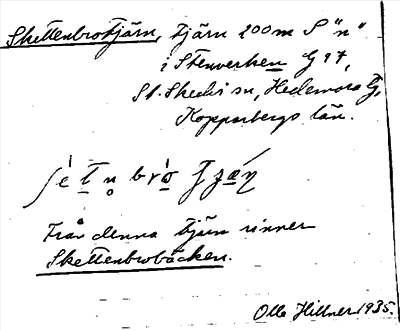 Skettenbrotjärn, tjärn 200m S "n"
i Stenverken G 17,
St. Skedvi sn, Hedemora T.,
Kopparbergs län.
Från denna tjärn rinner
Skettenbrobäcken.
Olle Hillner 1935.